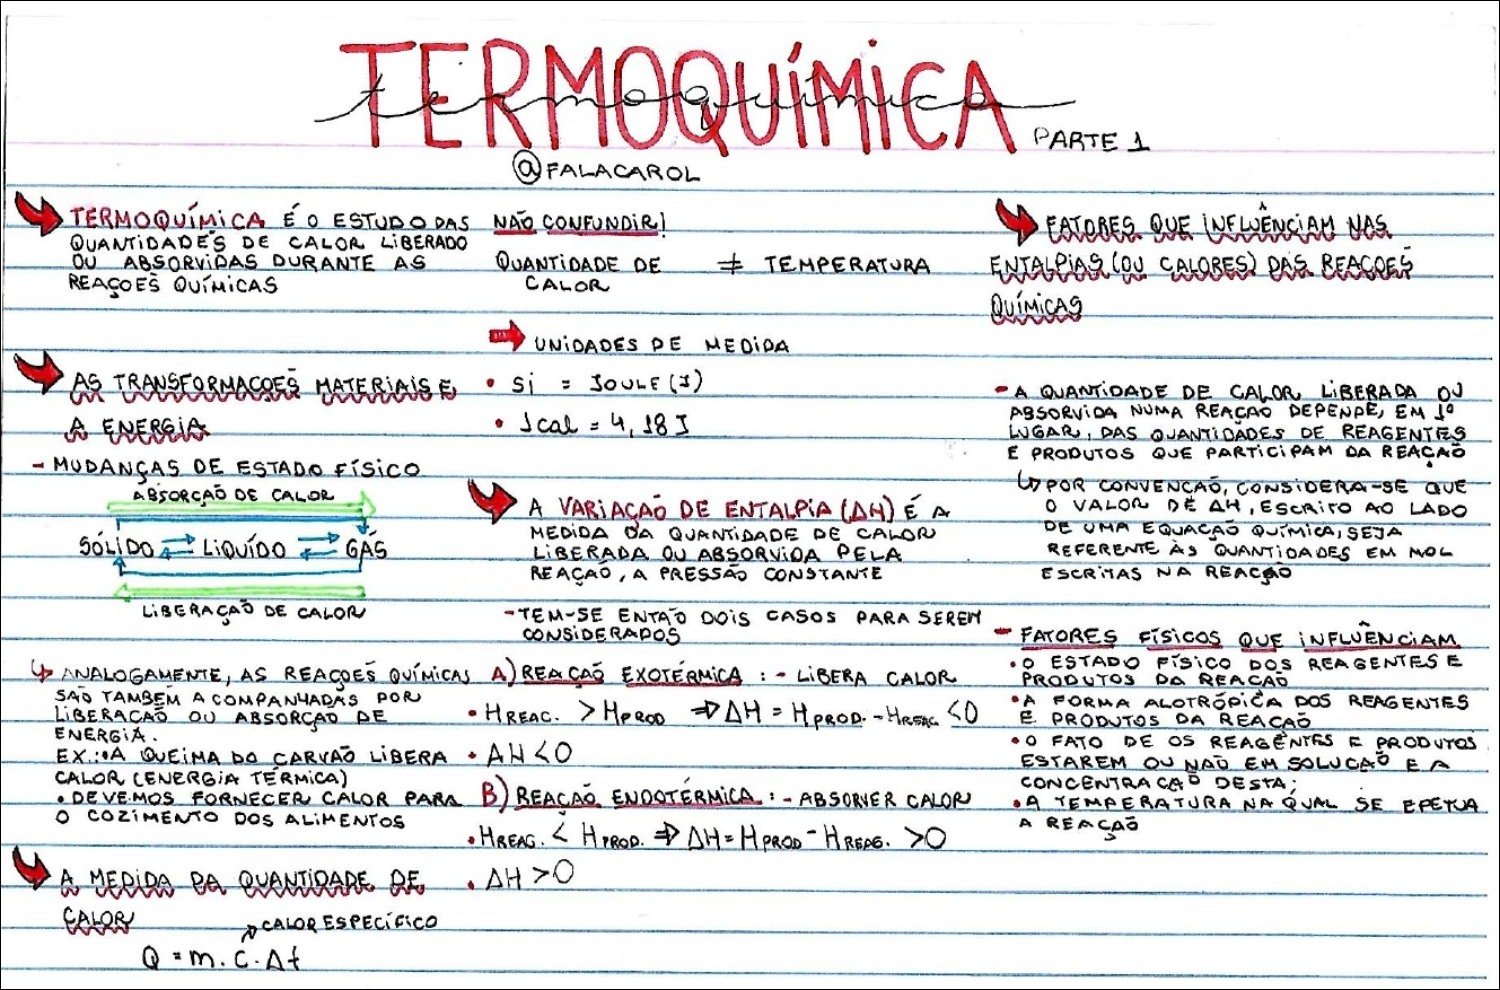 TERMOQUÍMICA
termoquímica
PARTE 1
@FALACAROL
TERMOQUÍMICA É O ESTUDO DAS
QUANTIDADES DE CALOR LIBERADO
OU ABSORVIDAS DURANTE AS
REAÇOES QUÍMICAS
AS TRANSFORMAÇOES MATERIAIS E
A ENERGIA
- MUDANÇAS DE ESTADO FÍSICO
ABSORÇÃO DE CALOR
SÓLIDO ⇄ LIQUÍDO ⇄ GÁS
LIBERAÇÃO DE CALOR
↳ ANALOGAMENTE, AS REAÇOES QUÍMICAS
SÃO TAMBÉM ACOMPANHADAS POR
LIBERACÃO OU ABSORÇÃO DE
ENERGIA.
EX.: • A QUEIMA DO CARVÃO LIBERA
CALOR (ENERGIA TÉRMICA)
• DEVEMOS FORNECER CALOR PARA
O COZIMENTO DOS ALIMENTOS
A MEDIDA DA QUANTIDADE DE
CALOR
CALOR ESPECÍFICO
Q = m. c. Δt
NÃO CONFUNDIR!
QUANTIDADE DE ≠ TEMPERATURA
CALOR
UNIDADES DE MEDIDA
• SI = JOULE (J)
• 1cal = 4,18 J
A VARIAÇÃO DE ENTALPIA (ΔH) É A
MEDIDA DA QUANTIDADE DE CALOR
LIBERADA OU ABSORVIDA PELA
REAÇÃO, A PRESSÃO CONSTANTE
- TEM-SE ENTÃO DOIS CASOS PARA SEREM
CONSIDERADOS
A) REAÇÃO EXOTÉRMICA : - LIBERA CALOR
• HREAC. > HPROD ⇒ ΔH = HPROD. - HREAG. < 0
• ΔH < 0
B) REAÇÃO ENDOTÉRMICA : - ABSORVER CALOR
• HREAG. < HPROD. ⇒ ΔH = HPROD - HREAG. > 0
• ΔH > 0
FATORES QUE INFLUÊNCIAM NAS
ENTALPIAS (OU CALORES) DAS REACOES
QUÍMICAS
- A QUANTIDADE DE CALOR LIBERADA OU
ABSORVIDA NUMA REAÇÃO DEPENDE, EM 1º
LUGAR, DAS QUANTIDADES DE REAGENTES
E PRODUTOS QUE PARTICIPAM DA REAÇÃO
↳ POR CONVENCÃO, CONSIDERA-SE QUE
O VALOR DE ΔH, ESCRITO AO LADO
DE UMA EQUAÇÃO QUÍMICA, SEJA
REFERENTE ÀS QUANTIDADES EM MOL
ESCRITAS NA REAÇÃO
- FATORES FÍSICOS QUE INFLUÊNCIAM
• O ESTADO FÍSICO DOS REAGENTES E
PRODUTOS DA REAÇÃO
• A FORMA ALOTRÓPICA DOS REAGENTES
E PRODUTOS DA REAÇÃO
• O FATO DE OS REAGENTES E PRODUTOS
ESTAREM OU NÃO EM SOLUCÃO E A
CONCENTRACÃO DESTA;
• A TEMPERATURA NA QUAL SE EFETUA
A REAÇÃO